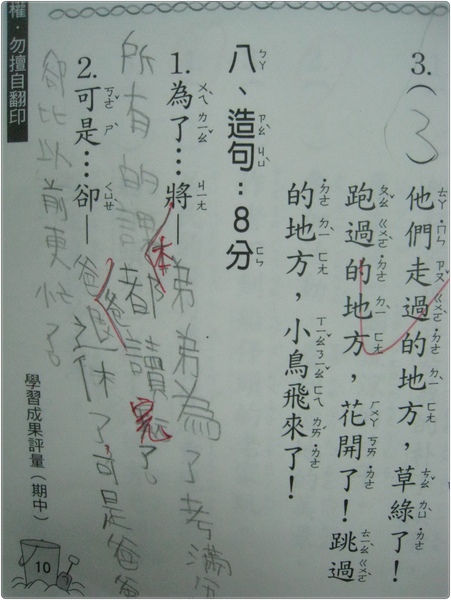 3.(3)他們走過的地方，草綠了！
跑過的地方，花開了！跳過
的地方，小鳥飛來了！
八、造句：8分
1.為了…將—弟弟為了考滿分
所有的課本都讀完了。
2.可是…卻—爸爸退休了可是爸爸
卻比以前更忙了。
權．勿擅自翻印
學習成果評量（期中）
10